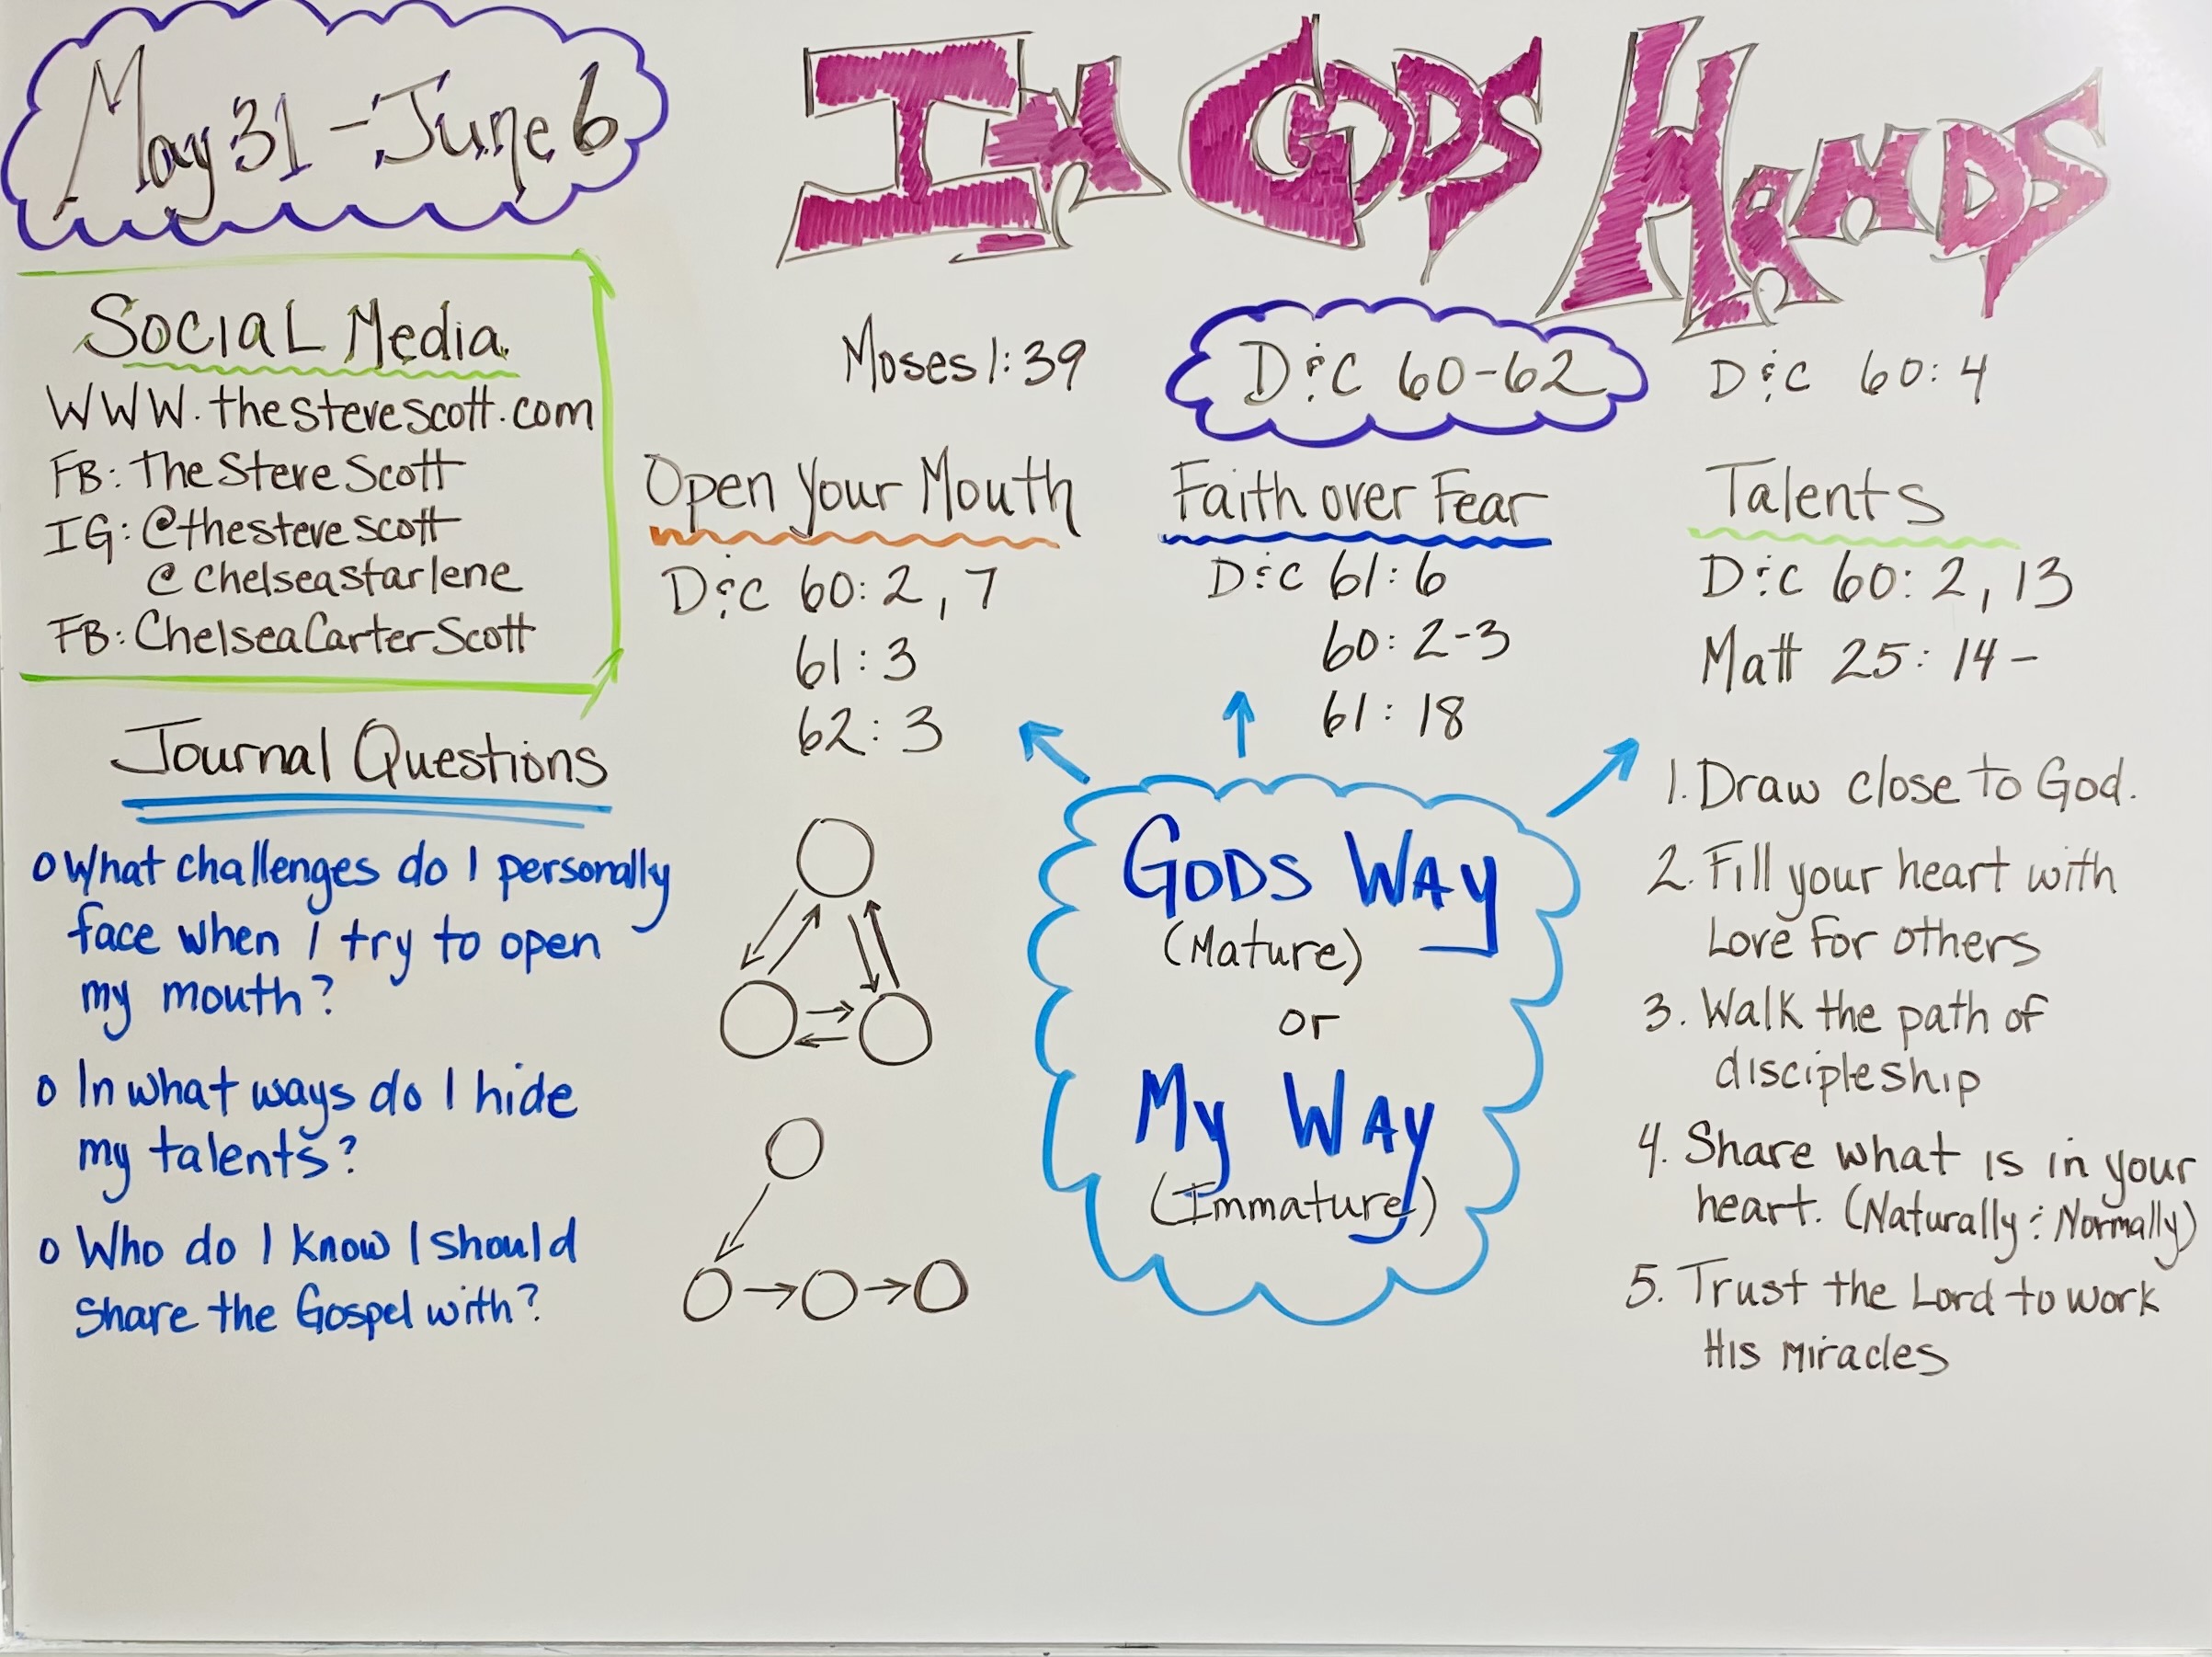 May 31 - June 6
In GODS HANDS
Social Media
WWW.thestevescott.com
FB: The Steve Scott
IG: @thestevescott
@chelseastarlene
FB: ChelseaCarterScott
Journal Questions
o What challenges do I personally
face when I try to open
my mouth?
o In what ways do I hide
my talents?
o Who do I know I should
share the Gospel with?
Moses 1:39
D&C 60-62
D&C 60:4
Open Your Mouth
D&C 60:2, 7
61:3
62:3
Faith over Fear
D&C 61:6
60:2-3
61:18
GODS WAY
(Mature)
or
My WAY
(Immature)
Talents
D&C 60:2, 13
Matt 25:14-
1. Draw close to God.
2. Fill your heart with
Love for others
3. Walk the path of
discipleship
4. Share what is in your
heart. (Naturally & Normally)
5. Trust the Lord to work
His Miracles